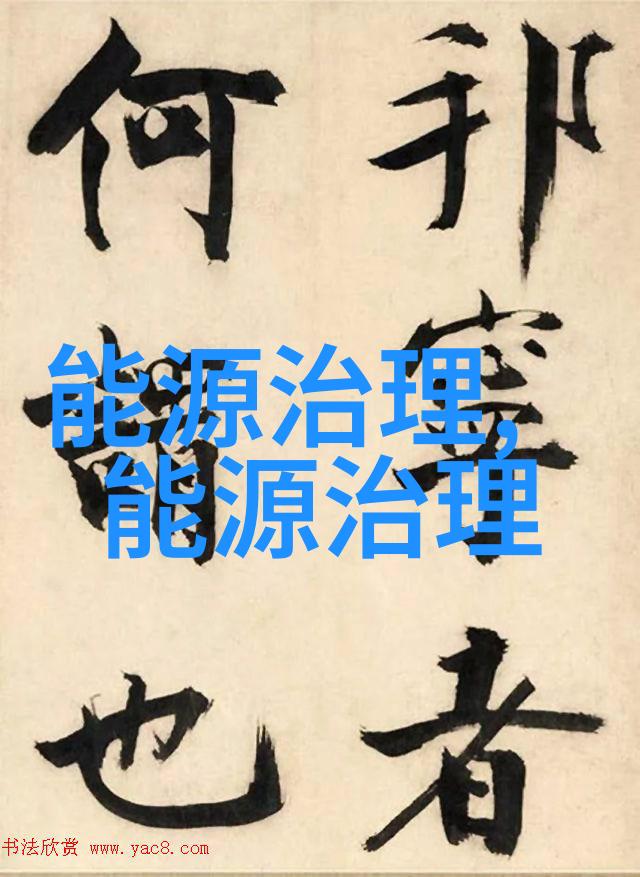 邦寧者
何謂也
能源治理,
能源治理
书法欣赏 www.yac8.com